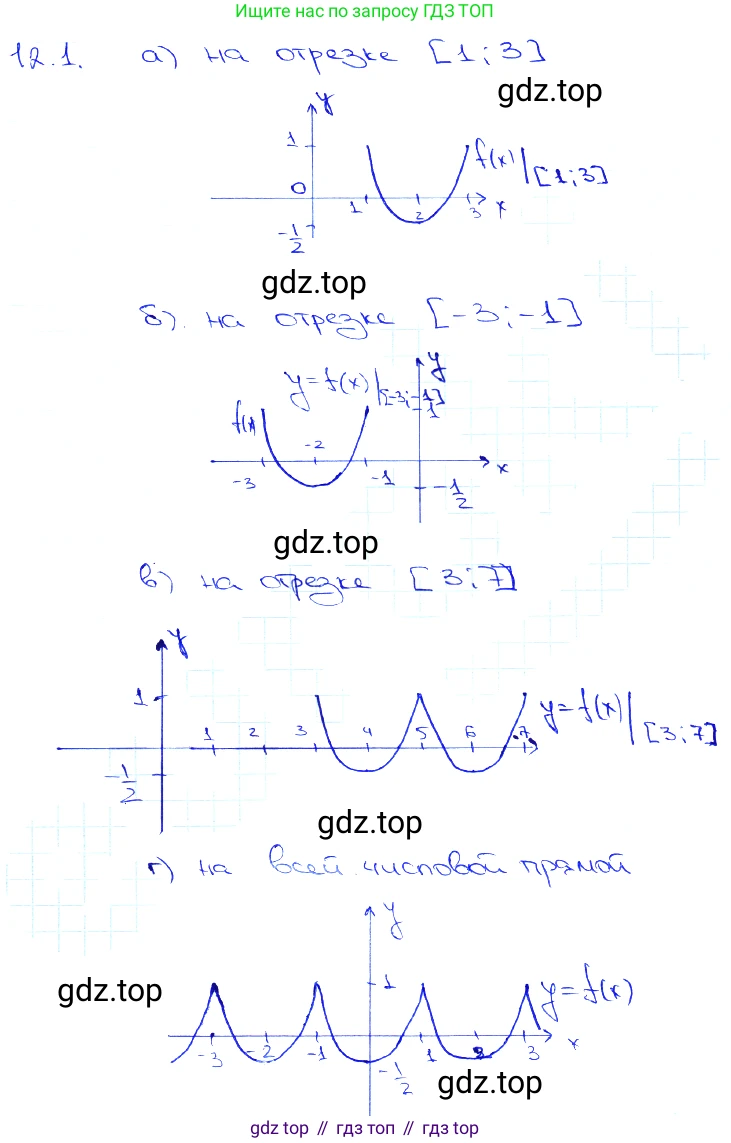 Ищите нас по запросу ГДЗ ТОП
12.1. а) на отрезке [1; 3]
gdz.top
y
1
f(x)|[1;3]
0
1 2 3 x
-1/2
gdz.top
б). на отрезке [-3; -1]
y
y=f(x)|[-3;-1]
1
f(x)
-2
-3 -1 x
-1/2
gdz.top
в) на отрезке [3; 7]
y
1
y=f(x)|[3;7]
1 2 3 4 5 6 7
-1/2
gdz.top
г) на всей числовой прямой
y
gdz.top
1
y=f(x)
-3 -2 -1 1 2 3 x
-1/2
gdz.top
gdz.top // гдз топ // gdz.top